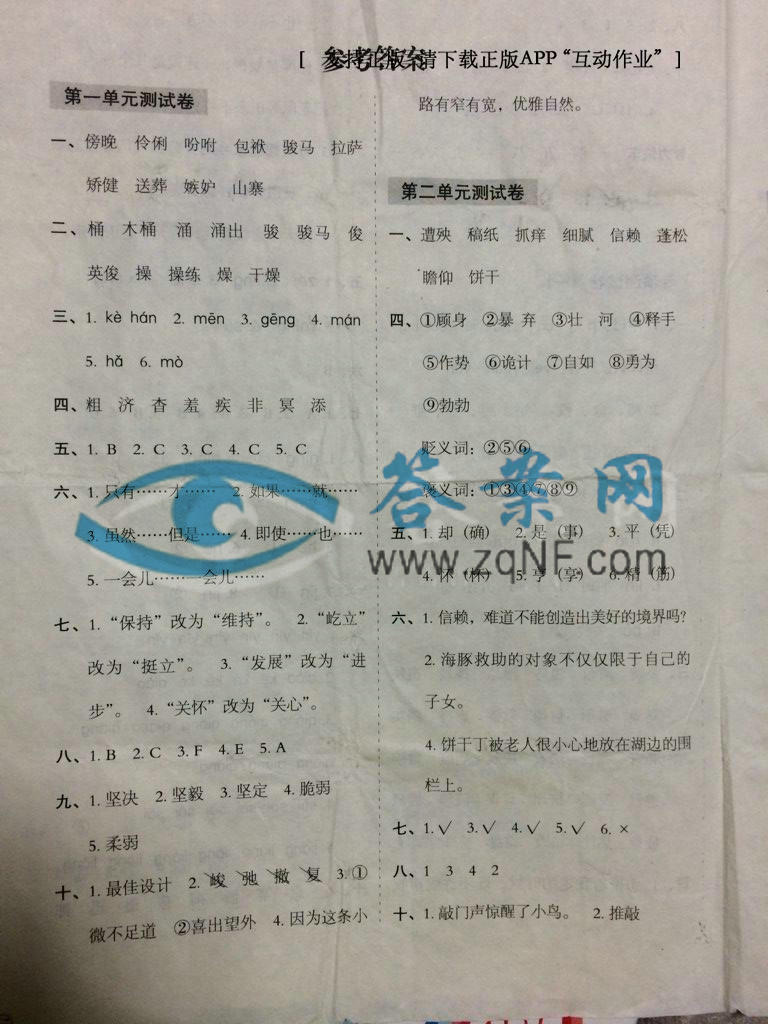 参考答案
[ 支持正版 请下载正版APP“互动作业” ]
第一单元测试卷
一、傍晚 伶俐 吩咐 包袱 骏马 拉萨
矫健 送葬 嫉妒 山寨
二、桶 木桶 涌 涌出 骏 骏马 俊
英俊 操 操练 燥 干燥
三、1. kè hán 2. mēn 3. gēng 4. mán
5. hǎ 6. mò
四、粗 济 杳 羞 疾 非 冥 添
五、1. B 2. C 3. C 4. C 5. C
六、1. 只有……才…… 2. 如果……就……
3. 虽然……但是…… 4. 即使……也……
5. 一会儿……一会儿……
七、1. “保持”改为“维持”。 2. “屹立”
改为“挺立”。 3. “发展”改为“进
步”。 4. “关怀”改为“关心”。
八、1. B 2. C 3. F 4. E 5. A
九、1. 坚决 2. 坚毅 3. 坚定 4. 脆弱
5. 柔弱
十、1. 最佳设计 2. 峻 弛 撤 复 3. ①
微不足道 ②喜出望外 4. 因为这条小
路有窄有宽，优雅自然。
第二单元测试卷
一、遭殃 稿纸 抓痒 细腻 信赖 蓬松
瞻仰 饼干
四、①顾身 ②暴 弃 ③壮 河 ④释手
⑤作势 ⑥诡计 ⑦自如 ⑧勇为
⑨勃勃
贬义词：②⑤⑥
褒义词：①③④⑦⑧⑨
五、1. 却（确） 2. 是（事） 3. 平（凭）
4. 怀（杯） 5. 亨（享） 6. 精（筋）
六、1. 信赖，难道不能创造出美好的境界吗？
2. 海豚救助的对象不仅仅限于自己的
子女。
4. 饼干丁被老人很小心地放在湖边的围
栏上。
七、1. √ 3. √ 4. √ 5. √ 6. ×
八、1 3 4 2
十、1. 敲门声惊醒了小鸟。 2. 推敲
答案网
www.zqNF.com